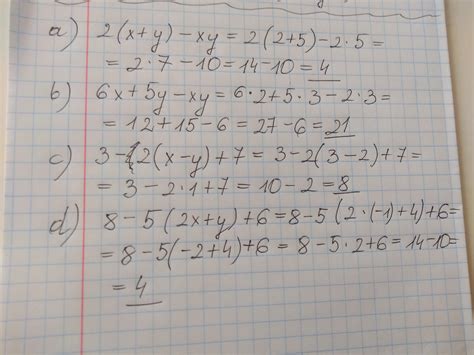 a) 2(x+y)-xy = 2(2+5)-2·5=
= 2·7-10=14-10=4
b) 6x+5y-xy=6·2+5·3-2·3=
= 12+15-6=27-6=21
c) 3-2(x-y)+7 = 3-2(3-2)+7=
= 3-2·1+7=10-2=8
d) 8-5(2x+y)+6=8-5(2·(-1)+4)+6=
= 8-5(-2+4)+6=8-5·2+6=14-10=
= 4